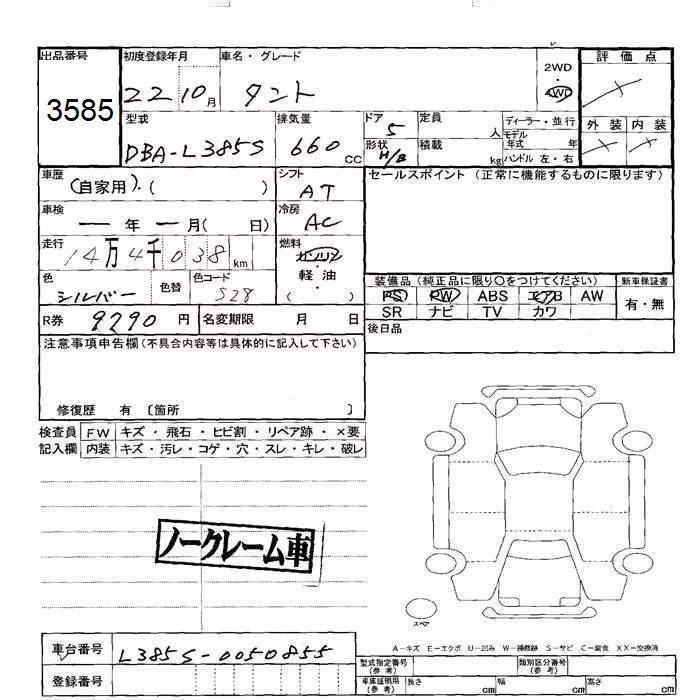 出品番号 初度登録年月 車名・グレード 2WD 評価点
3585 22 10月 タント ・ 4WD
型式 排気量 ドア 定員 ディーラー・並行 外装 内装
DBA-L385S 660 CC 5 人 モデル年式 年
形状 H/B 積載 kg ハンドル 左・右
車歴 (自家用)・( ) シフト AT セールスポイント (正常に機能するものに限ります)
車検 ー年ー月( 日) 冷房 AC
走行 14万4千038km 燃料 ガソリン
軽油
色 シルバー 色替 色コード S28 ( )
装備品 (純正品に限り○をつけてください) 新車保証書
PS PW ABS エアB AW 有・無
SR ナビ TV カワ
R券 9290円 名変期限 月 日 後日品
注意事項申告欄(不具合内容等は具体的に記入して下さい)
修復歴 有 〔箇所 〕
検査員 FW キズ・飛石・ヒビ割・リペア跡・×要
記入欄 内装 キズ・汚レ・コゲ・穴・スレ・キレ・破レ
ノークレーム車
スペア
A-キズ E-エクボ U-凹み W-補修跡 S-サビ C-腐食 XX-交換済
車台番号 L385S-0050855
型式指定番号(参考) 類別区分番号(参考)
登録番号 車庫証明用(参考) 長さ cm 幅 cm 高さ cm